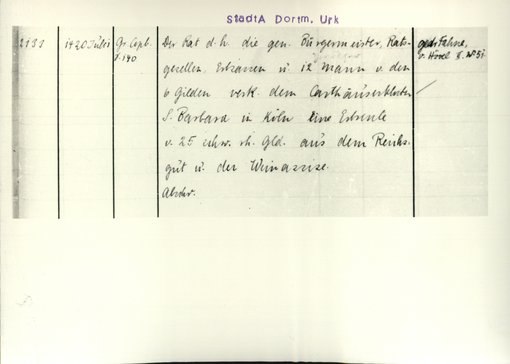 StadtA Dortm. Urk
1420 Juli 1
Gr. Copb.
f. 140
Der Rat d. h. die gen. Bürgermeister, Rats-
gesellen, Erbsassen u. 12 Mann v. den
6 Gilden verk. dem Carthäuserkloster
S. Barbara in Köln eine Erbrente
v. 25 schw. rh. Gld. aus dem Reichs-
gut u. der Weinassise.
Abschr.
gedr. Fahne,
v. Hövel II. No 51.